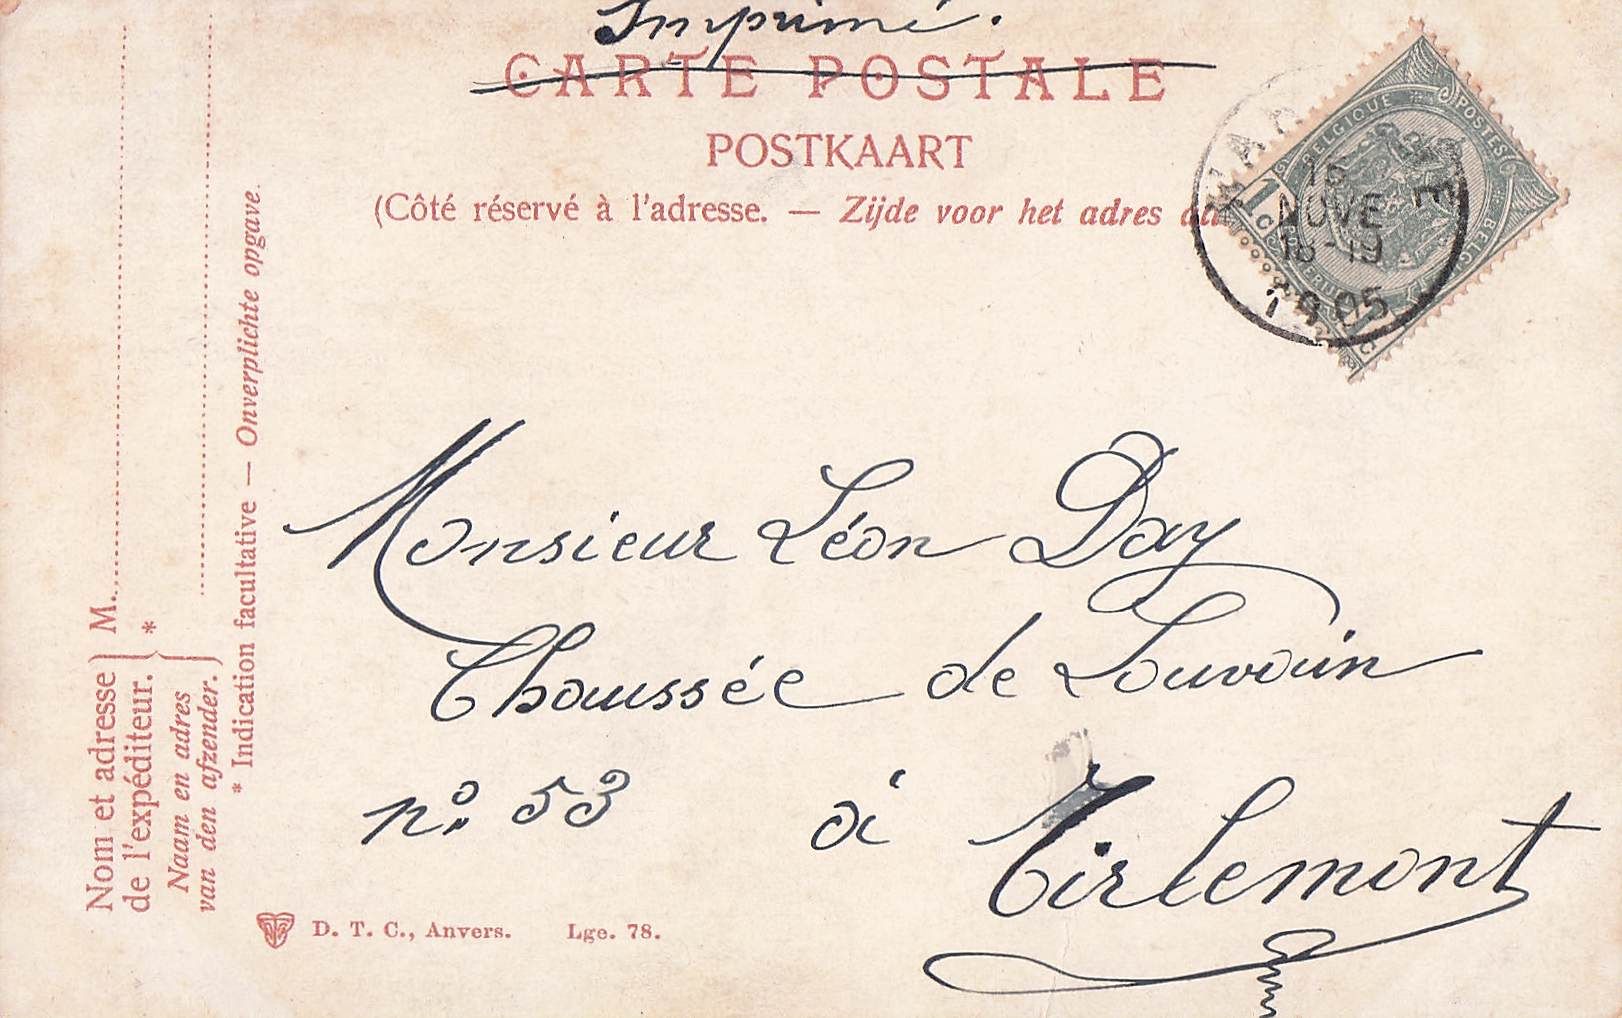 Imprimé.
CARTE POSTALE
POSTKAART
(Côté réservé à l'adresse. — Zijde voor het adres
BELGIQUE POSTES
1 C
15
NOVE
18-19
1905
Monsieur Léon Day
Chaussée de Louvain
n.º 53 à Tirlemont
Nom et adresse de l'expéditeur. } M.
*
Naam en adres van den afzender. }
* Indication facultative — Onverplichte opgave.
D. T. C., Anvers. Lge. 78.